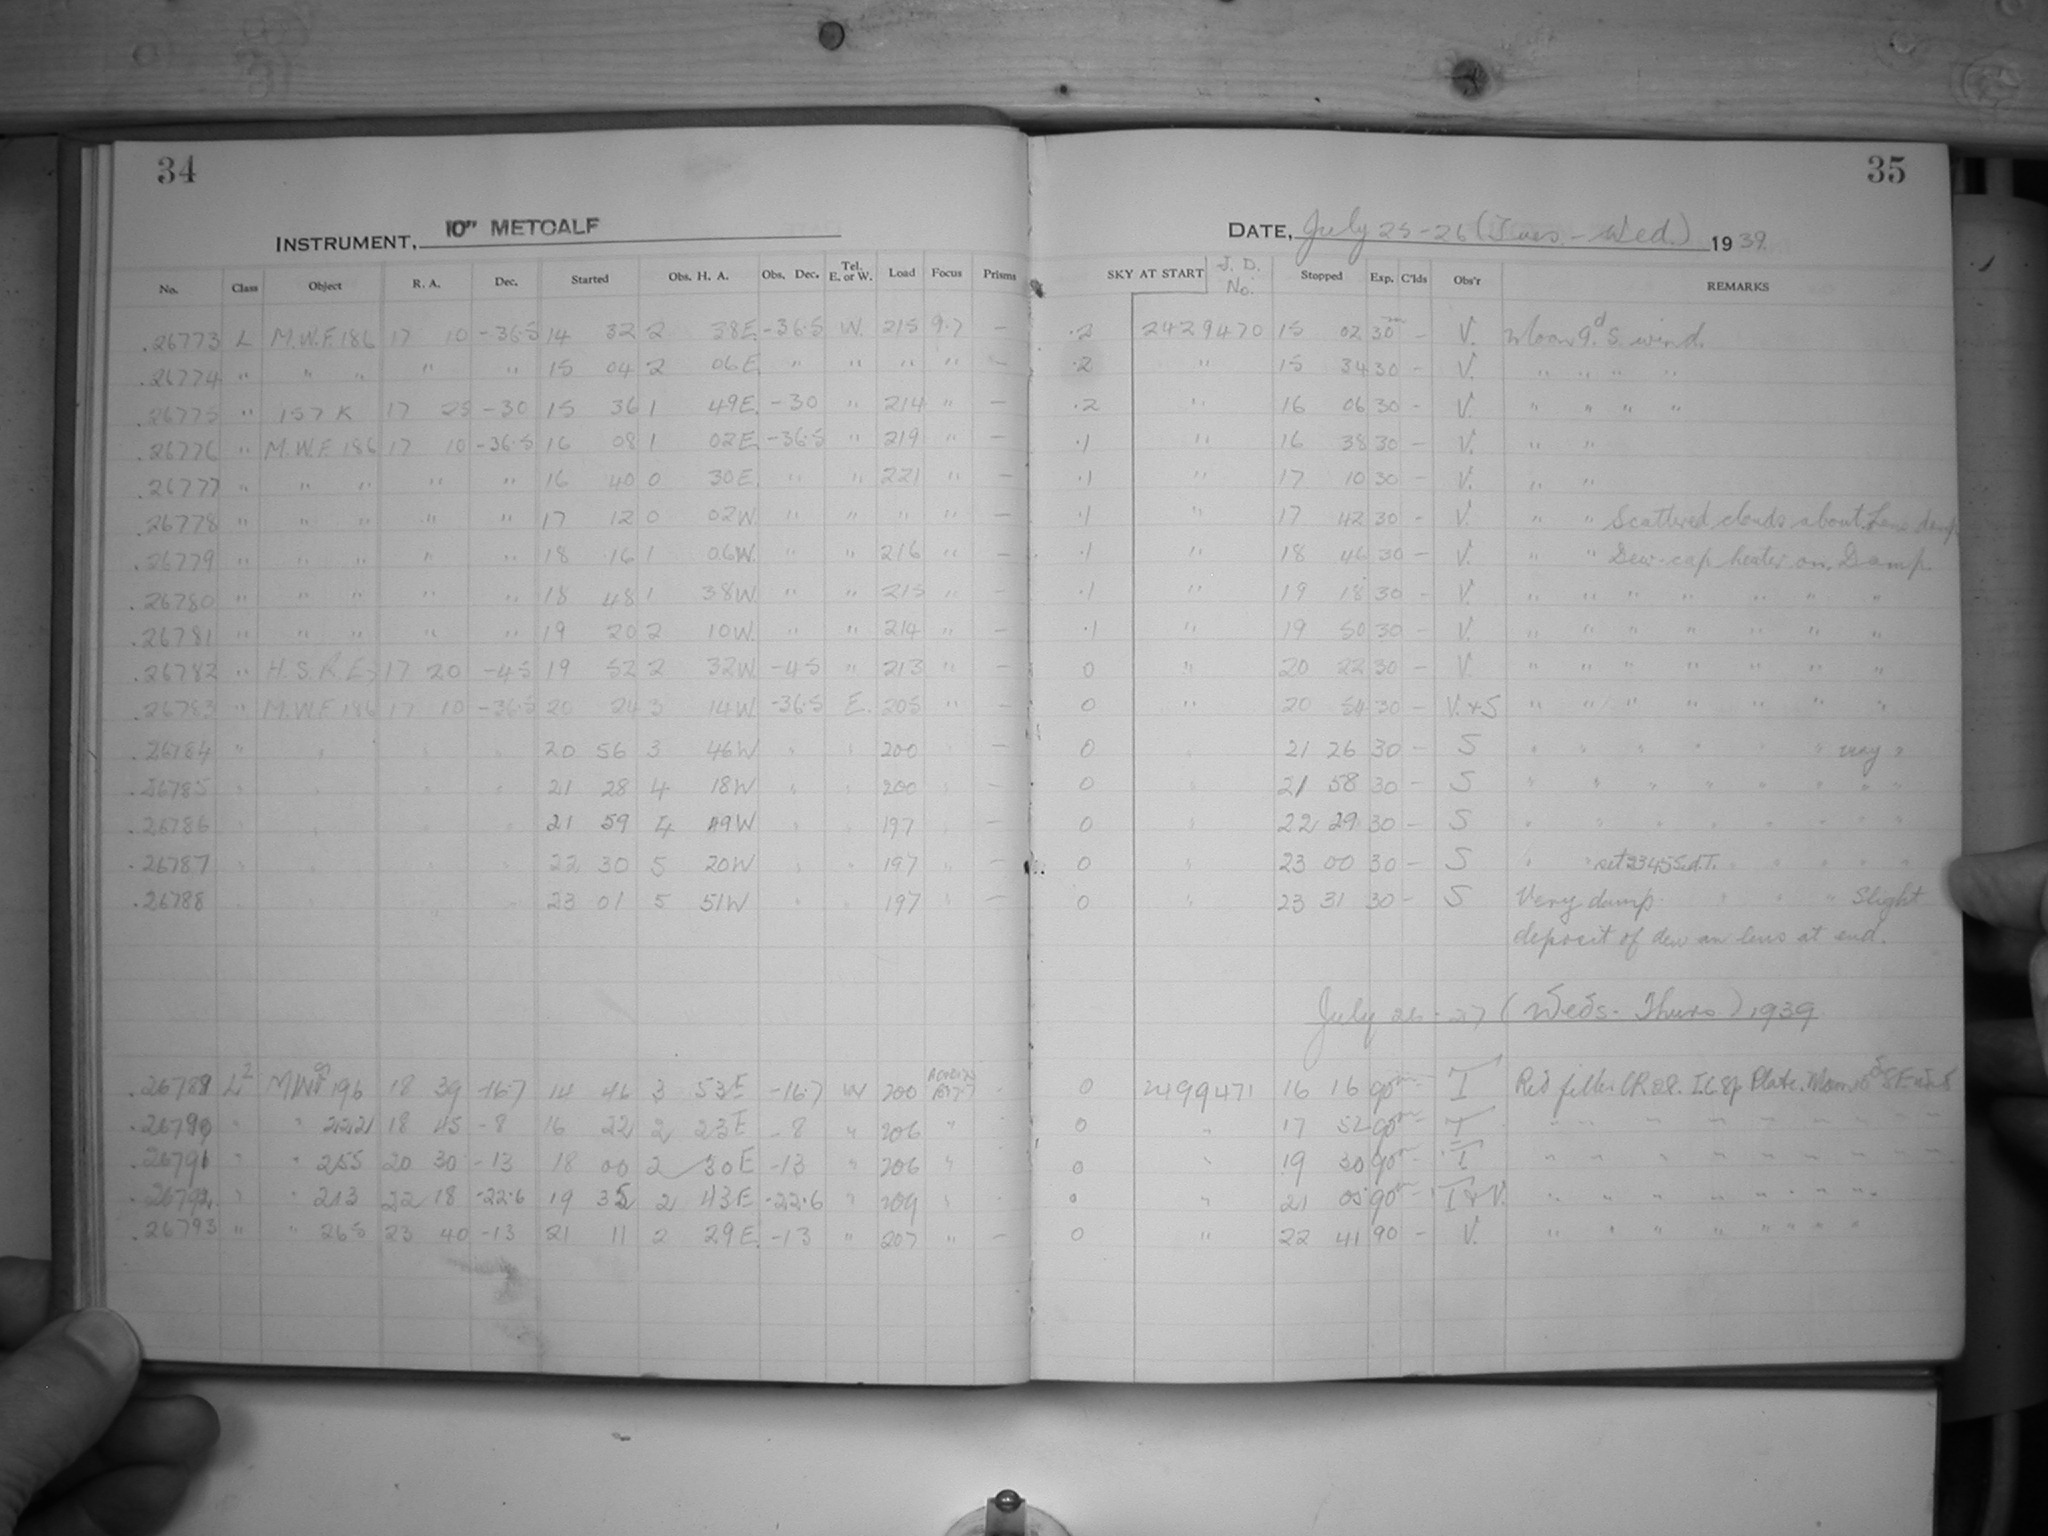 34
35
INSTRUMENT, 10" METCALF
DATE, July 25-26 (Tues. - Wed.) 1939
No. Class Object R. A. Dec. Started Obs. H. A. Obs. Dec. Tel. E. or W. Load Focus Prisms SKY AT START J. D. No. Stopped Exp. C'lds Obs'r REMARKS
.26773 L M.W.F. 186 17 10 -36.5 14 32 2 38E -36.5 W. 215 9.7 - .2 2429470 15 02 30m - V. Moon 9d. S. wind.
.26774 " " " " " 15 04 2 06E " " " " - .2 " 15 34 30 - V. " " " "
.26775 " 157 K 17 25 -30 15 36 1 49E. -30 " 214 " - .2 " 16 06 30 - V. " " " "
.26776 " M.W.F. 186 17 10 -36.5 16 08 1 02E -36.5 " 219 " - .1 " 16 38 30 - V. " "
.26777 " " " " " 16 40 0 30E. " " 221 " - .1 " 17 10 30 - V. " "
.26778 " " " " " 17 12 0 02W " " " " - .1 " 17 42 30 - V. " " Scattered clouds about. Lens damp
.26779 " " " " " 18 16 1 06W. " " 216 " - .1 " 18 46 30 - V. " " Dew-cap heater on. Damp
.26780 " " " " " 18 48 1 38W " " 215 " - .1 " 19 18 30 - V. " " " " " " "
.26781 " " " " " 19 20 2 10W. " " 214 " - .1 " 19 50 30 - V. " " " " " " "
.26782 " H.S.R.E. 17 20 -45 19 52 2 32W -45 " 213 " - 0 " 20 22 30 - V. " " " " " " "
.26783 " M.W.F. 186 17 10 -36.5 20 24 3 14W -36.5 E. 205 " - 0 " 20 54 30 - V.+S " " " " " " "
.26784 " " " " 20 56 3 46W " " 200 " - 0 " 21 26 30 - S " " " " " " very "
.26785 " " " " 21 28 4 18W " " 200 " - 0 " 21 58 30 - S " " " " " " " "
.26786 " " " " 21 59 4 49W " " 197 " - 0 " 22 29 30 - S " " " " " " " "
.26787 " " " " 22 30 5 20W " " 197 " - 0 " 23 00 30 - S " " set 2345 Sid.T. " " " " "
.26788 " " " 23 01 5 51W " " 197 " - 0 " 23 31 30 - S Very damp. " " " Slight
deposit of dew on lens at end.
July 26-27 (Weds. - Thurs) 1939
.26789 L2 MWF 196 18 39 -16.7 14 46 3 53E -16.7 W 200 - 0 2499471 16 16 90m - T Red filter Plate. Moon 10d
.26790 " " 221 18 45 -8 16 22 2 23E -8 " 206 " - 0 " 17 52 90m - T " " " " " " "
.26791 " " 255 20 30 -13 18 00 2 30E -13 " 206 " - 0 " 19 30 90m - T " " " " " " "
.26792 " " 213 22 18 -22.6 19 35 2 43E -22.6 " 209 " - 0 " 21 05 90m - T+V. " " " " " " "
.26793 " " 265 23 40 -13 21 11 2 29E. -13 " 207 " - 0 " 22 41 90 - V. " " " " " " " "